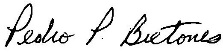 Pedro P. Bretones